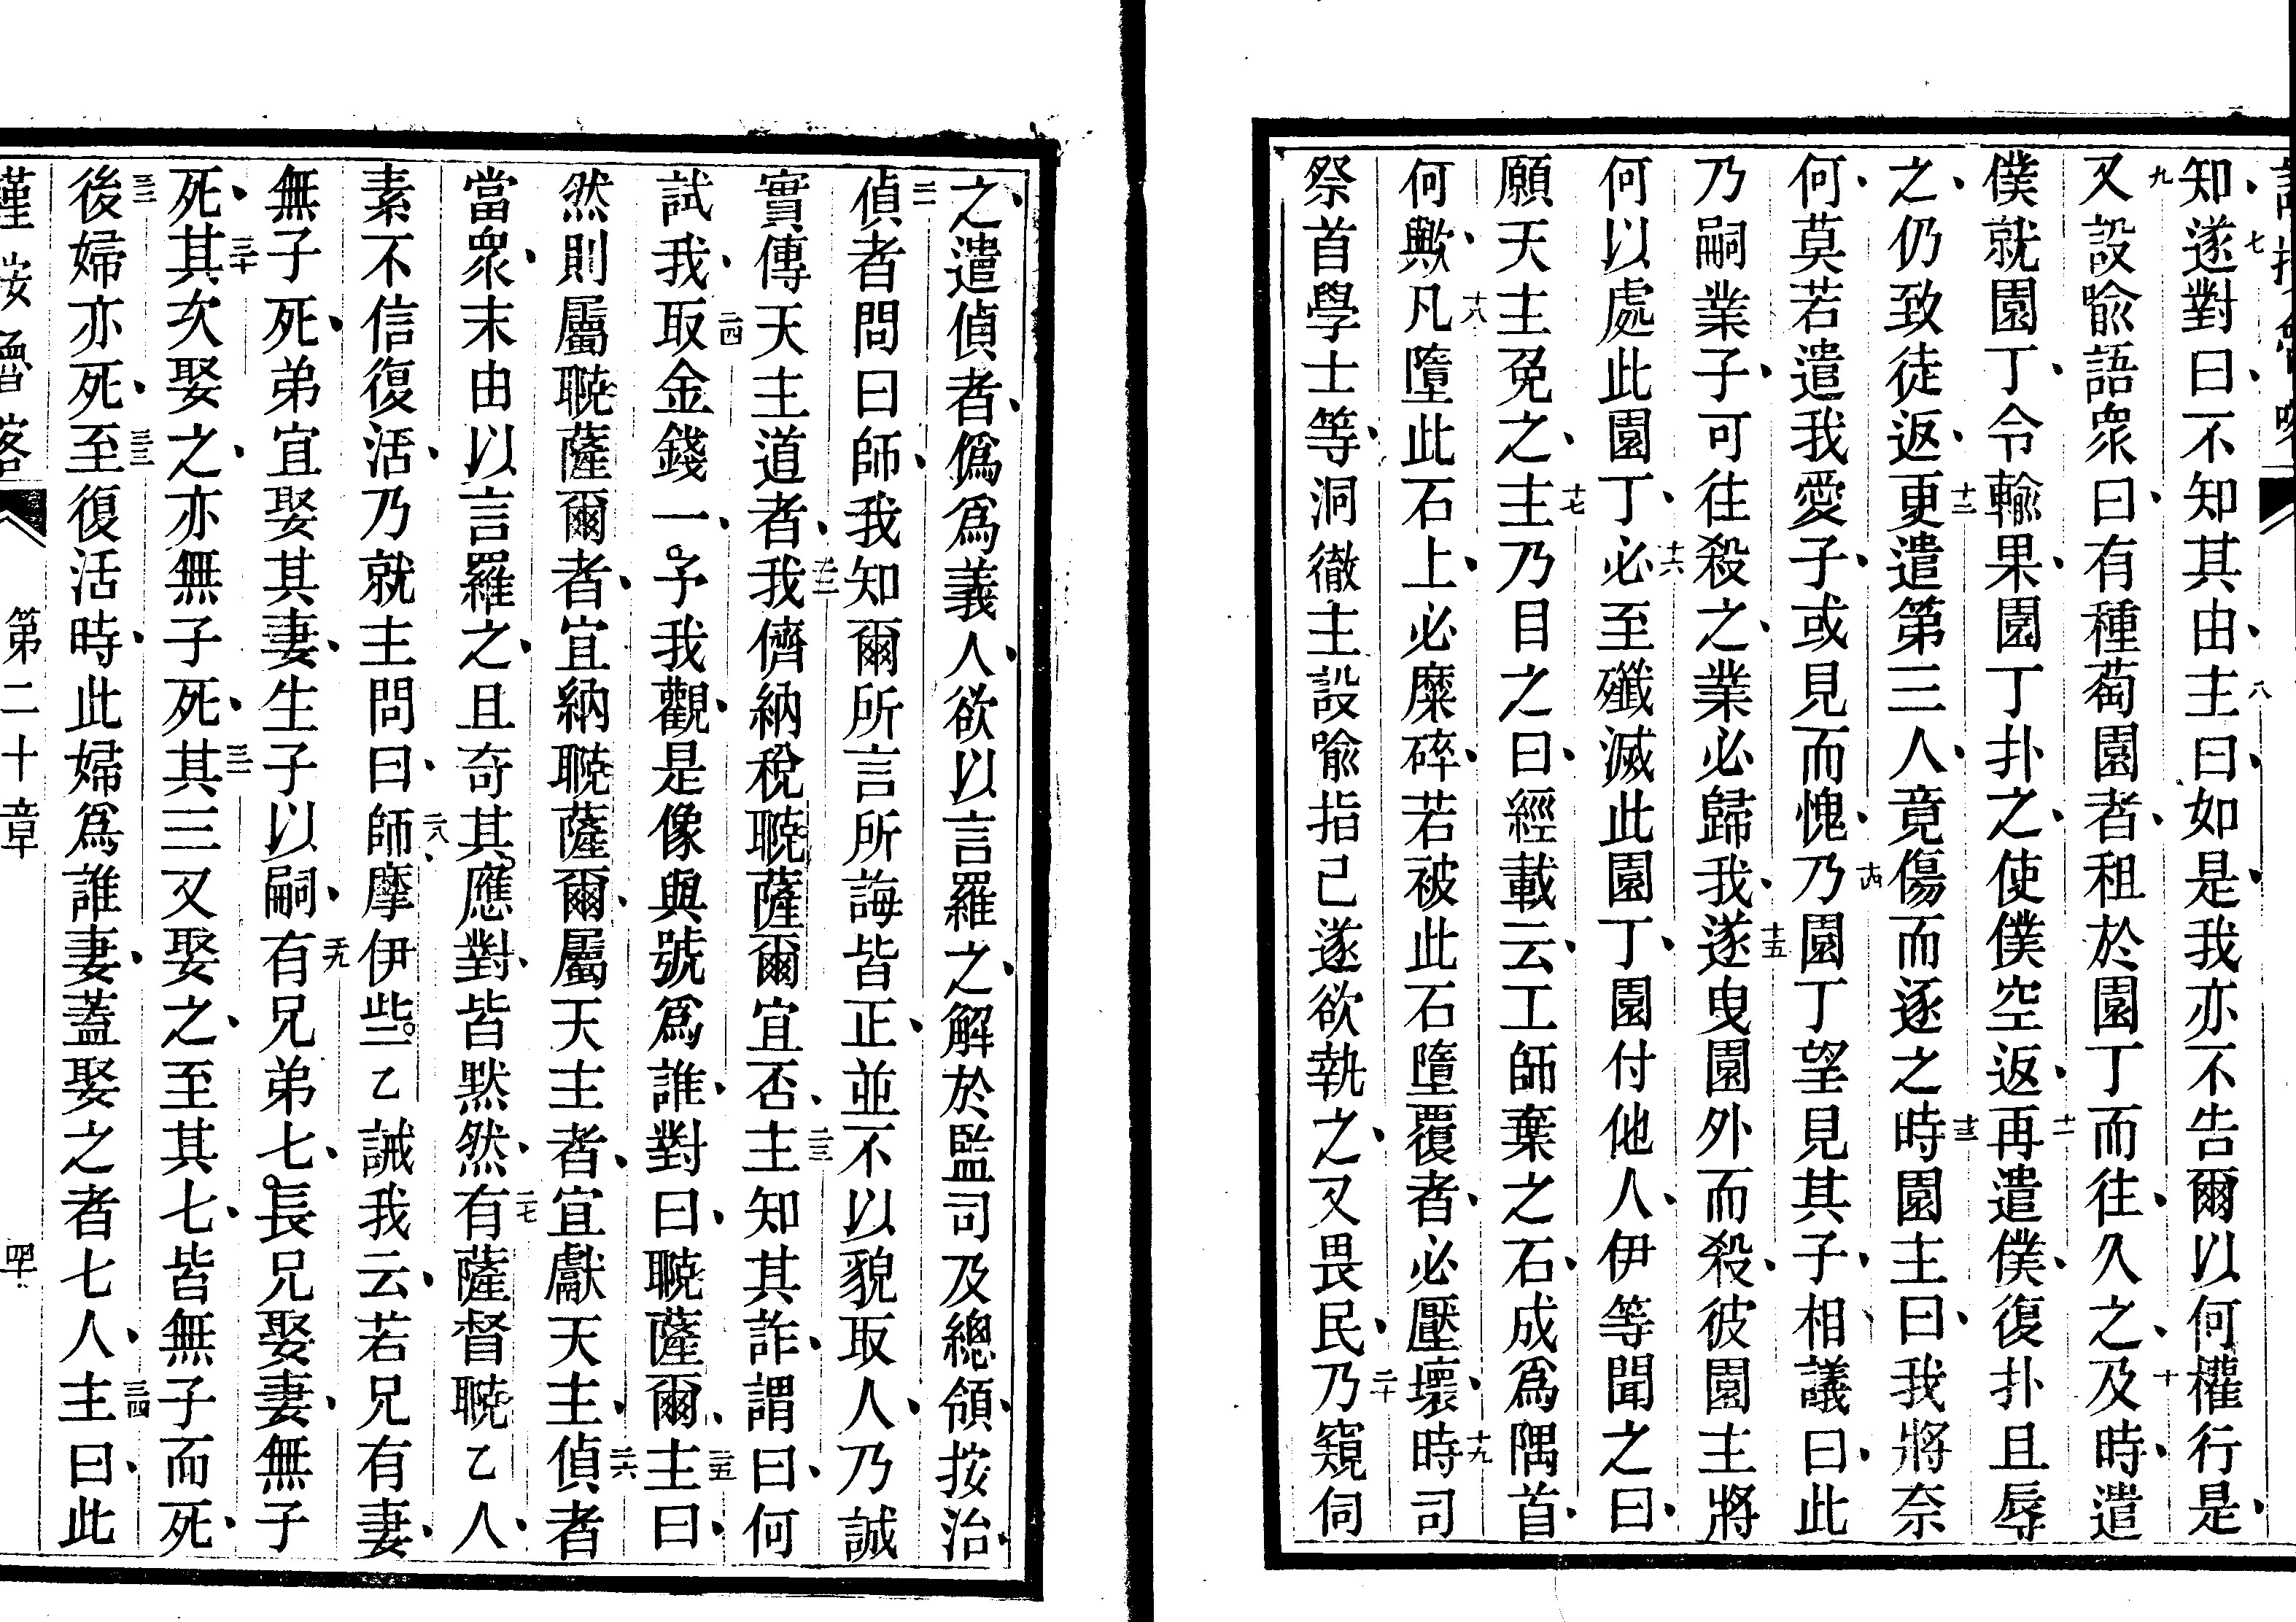 知七遂對曰不知其由主八曰如是我亦不告爾以何權行是
又九設喻語衆曰有種萄園者租於園丁而往久之及十時遣
僕就園丁令輸果園丁扑之使僕空返再十一遣僕復扑且辱
之仍致徒返更十二遣第三人竟傷而逐之時十三園主曰我將奈
何莫若遣我愛子或見而愧乃十四園丁望見其子相議曰此
乃嗣業子可往殺之業必歸我遂十五曳園外而殺彼園主將
何以處此園丁必十六至殲滅此園丁園付他人伊等聞之曰
願天主免之主十七乃目之曰經載云工師棄之石成爲隅首
何歟凡十八墮此石上必糜碎若被此石墮覆者必壓壞時十九司
祭首學士等洞徹主設喻指己遂欲執之又畏民乃二十窺伺
之遣偵者僞爲義人欲以言羅之解於監司及總領按治
偵二一者問曰師我知爾所言所誨皆正並不以貌取人乃誠
實傳天主道者我二二儕納稅聭薩爾宜否主二三知其詐謂曰何
試我取二四金錢一予我觀是像與號爲誰對曰聭薩爾主二五曰
然則屬聭薩爾者宜納聭薩爾屬天主者宜獻天主偵二六者
當衆末由以言羅之且奇其應對皆默然有二七薩督聭乙人
素不信復活乃就主問曰師二八摩伊些乙誡我云若兄有妻
無子死弟宜娶其妻生子以嗣有二九兄弟七長兄娶妻無子
死其三十次娶之亦無子死其三一三又娶之至其七皆無子而死
後三二婦亦死至三三復活時此婦爲誰妻蓋娶之者七人主三四曰此
第二十章 四十